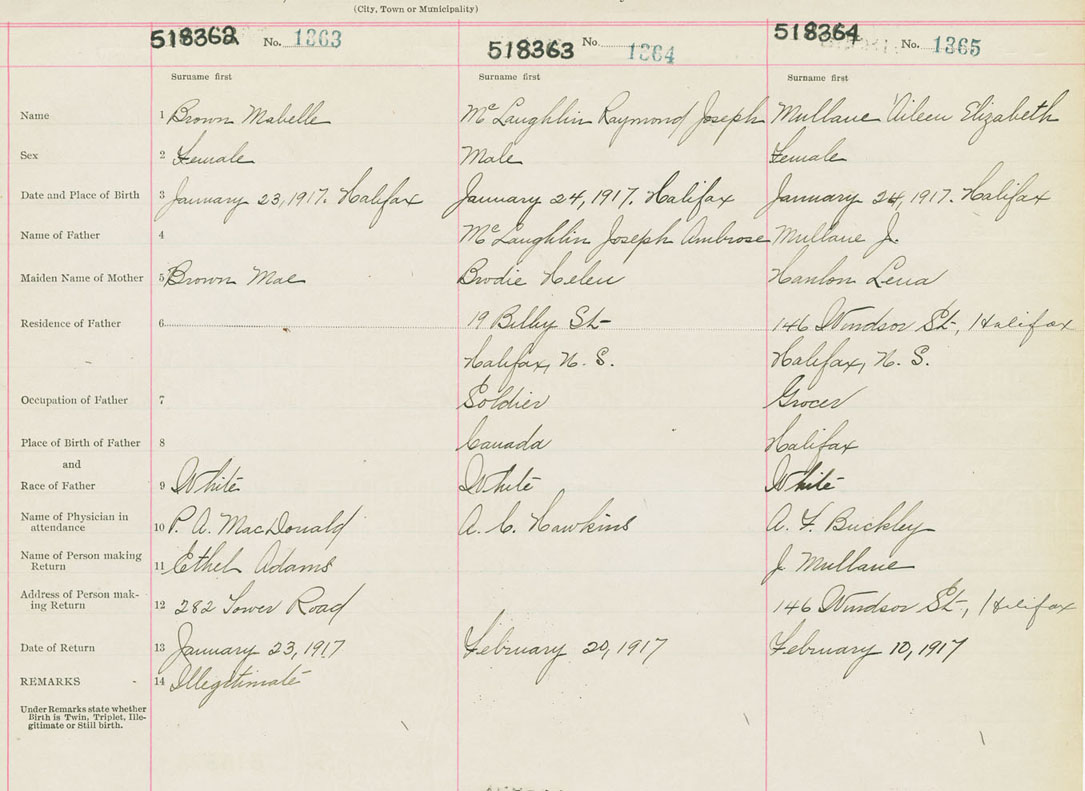 (City, Town or Municipality)
518362 No. 1363 518363 No. 1364 518364 No. 1365
Surname first Surname first Surname first
Name 1 Brown Mabelle McLaughlin Raymond Joseph Mullane Aileen Elizabeth
Sex 2 Female Male Female
Date and Place of Birth 3 January 23, 1917. Halifax January 24, 1917. Halifax January 24, 1917. Halifax
Name of Father 4 McLaughlin Joseph Ambrose Mullane J.
Maiden Name of Mother 5 Brown Mae Brodie Helen Hanlon Lena
Residence of Father 6 19 Bilby St 146 Windsor St, Halifax
Halifax, N. S. Halifax, N. S.
Occupation of Father 7 Soldier Grocer
Place of Birth of Father 8 Canada Halifax
and
Race of Father 9 White White White
Name of Physician in
attendance 10 P. A. MacDonald A. C. Hawkins A. F. Buckley
Name of Person making
Return 11 Ethel Adams J. Mullane
Address of Person mak-
ing Return 12 282 Tower Road 146 Windsor St, Halifax
Date of Return 13 January 23, 1917 February 20, 1917 February 10, 1917
REMARKS - 14 Illegitimate
Under Remarks state whether
Birth is Twin, Triplet, Ille-
gitimate or Still birth.